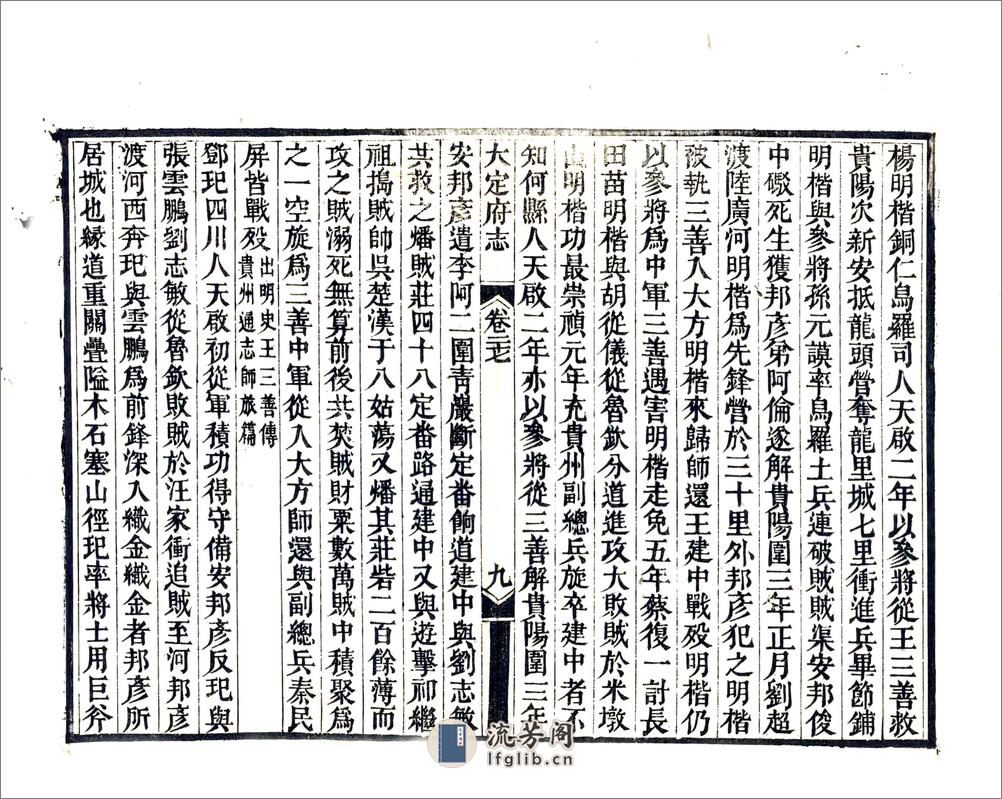 楊明楷銅仁烏羅司人天啟二年以參將從王三善救
貴陽次新安抵龍頭營奪龍里城七里衝進兵畢節鋪
明楷與參將孫元謨率烏羅土兵連破賊賊渠安邦俊
中礮死生獲邦彥弟阿倫遂解貴陽圍三年正月劉超
渡陸廣河明楷為先鋒營於三十里外邦彥犯之明楷
被執三善入大方明楷來歸師還王建中戰歿明楷仍
以參將為中軍三善遇害明楷走免五年蔡復一計長
田苗明楷與胡從儀從魯欽分道進攻大敗賊於米墩
山明楷功最崇禎元年充貴州副總兵旋卒建中者不
知何縣人天啟二年亦以參將從三善解貴陽圍三年
大定府志 卷三七 九
安邦彥遣李阿二圍青巖斷定番餉道建中與劉志敏
共救之燔賊莊四十八定番路通建中又與遊擊祁繼
祖搗賊帥吳楚漢于八姑蕩又燔其莊砦二百餘薄而
攻之賊溺死無算前後共焚賊財粟數萬賊中積聚為
之一空旋為三善中軍從入大方師還與副總兵秦民
屏皆戰歿出明史王三善傳
貴州通志師旅篇
鄧玘四川人天啟初從軍積功得守備安邦彥反玘與
張雲鵬劉志敏從魯欽敗賊於汪家衝追賊至河邦彥
渡河西奔玘與雲鵬為前鋒深入織金織金者邦彥所
居城也緣道重關疊隘木石塞山徑玘率將士用巨斧
流芳阁
lfglib.cn